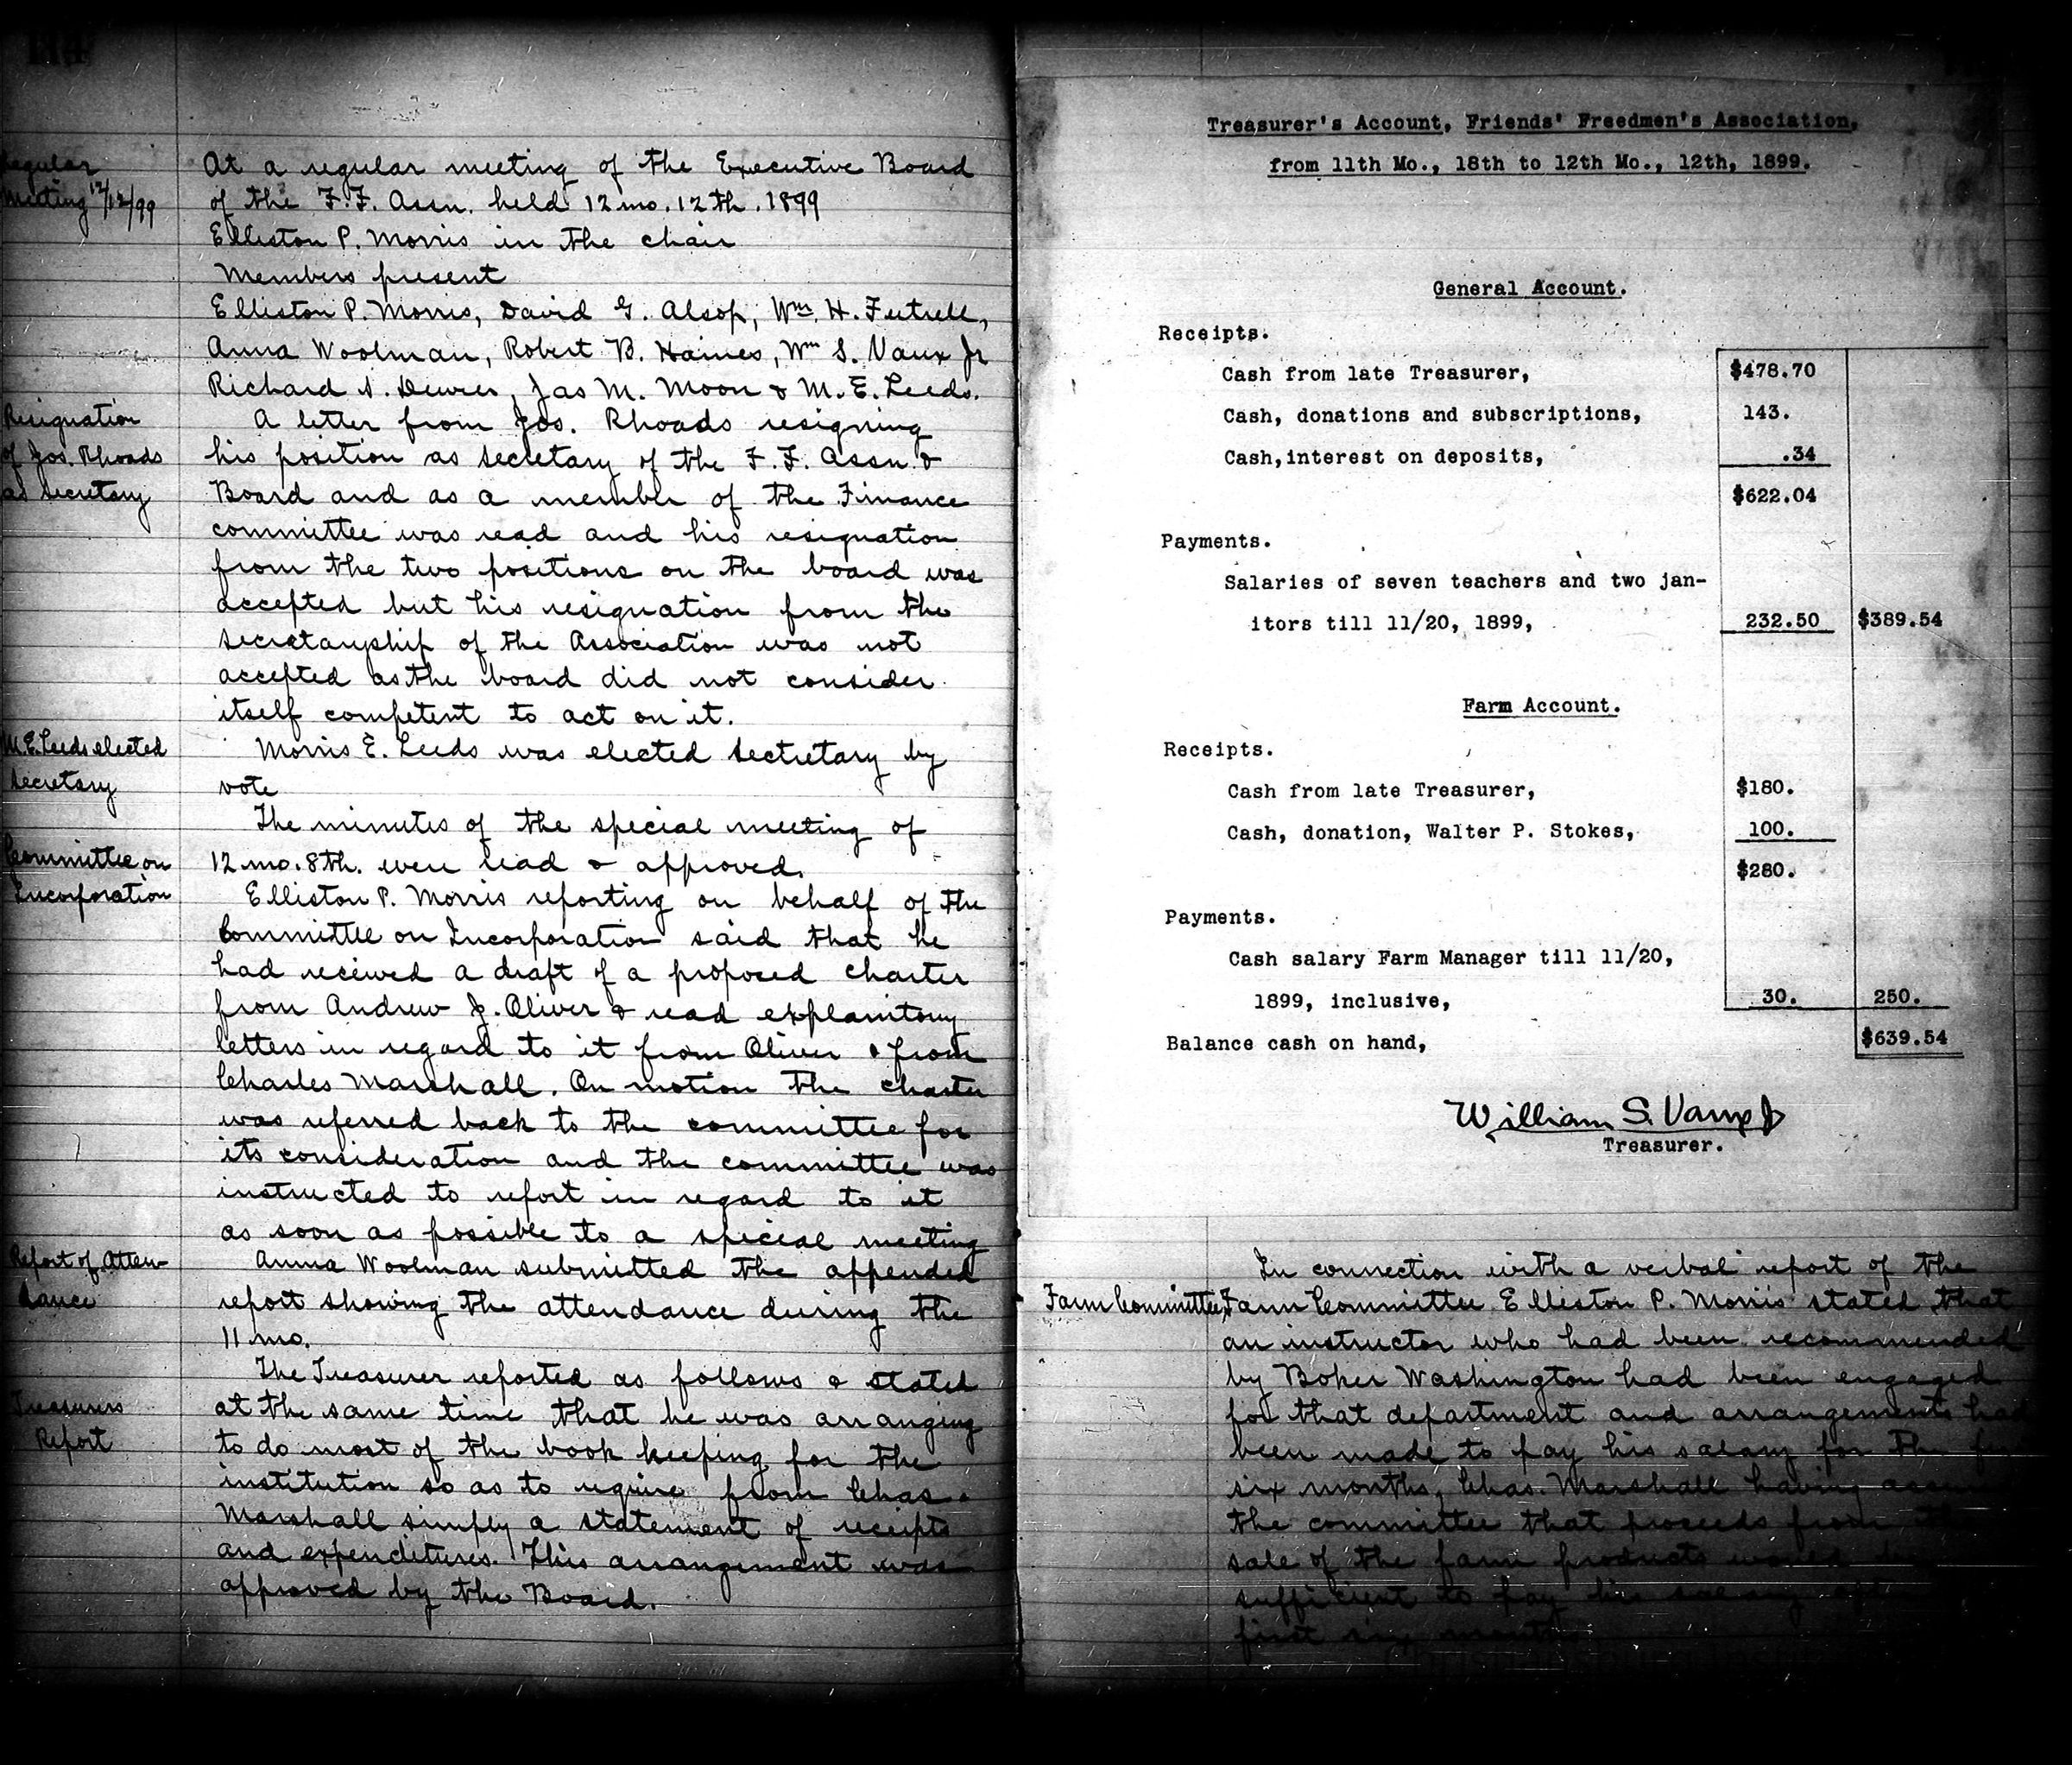 114
Regular
Meeting 12/12/99
At a regular meeting of the Executive Board
of the F.F. Assn. held 12 mo. 12th. 1899
Elliston P. Morris in the chair
Members present
Elliston P. Morris, David G. Alsop, Wm. H. Futrell,
Anna Woolman, Robert B. Haines, Wm S. Vaux Jr
Richard S. Dewees, Jas M. Moon & M.E. Leeds.
Resignation
of Jos. Rhoads
as secretary
A letter from Jos. Rhoads resigning
his position as secretary of the F.F. Assn. &
Board and as a member of the Finance
committee was read and his resignation
from the two positions on the board was
accepted but his resignation from the
secretaryship of the Association was not
accepted as the board did not consider
itself competent to act on it.
M.E. Leeds elected
secretary
Morris E. Leeds was elected secretary by
vote
The minutes of the special meeting of
12 mo. 8th. were read & approved.
Committee on
Incorporation
Elliston P. Morris reporting on behalf of the
Committee on Incorporation said that he
had received a draft of a proposed charter
from Andrew J. Oliver & read explanitory
letters in regard to it from Oliver & from
Charles Marshall. On motion the charter
was referred back to the committee for
its consideration and the committee was
instructed to report in regard to it
as soon as possible to a special meeting
Report of Atten-
dance
Anna Woolman submitted the appended
report showing the attendance during the
11 mo.
Treasurers
Report
The Treasurer reported as follows & stated
at the same time that he was arranging
to do most of the book keeping for the
institution so as to require from Chas.
Marshall simply a statement of receipts
and expenditures. This arrangement was
approved by the Board.
Treasurer's Account, Friends' Freedmen's Association,
from 11th Mo., 18th to 12th Mo., 12th, 1899.
General Account.
Receipts.
Cash from late Treasurer, $478.70
Cash, donations and subscriptions, 143.
Cash,interest on deposits, .34
$622.04
Payments.
Salaries of seven teachers and two jan-
itors till 11/20, 1899, 232.50 $389.54
Farm Account.
Receipts.
Cash from late Treasurer, $180.
Cash, donation, Walter P. Stokes, 100.
$280.
Payments.
Cash salary Farm Manager till 11/20,
1899, inclusive, 30. 250.
Balance cash on hand, $639.54
William S. Vaux Jr
Treasurer.
Farm Committee
In connection with a verbal report of the
Farm Committee Elliston P. Morris stated that
an instructor who had been recommended
by Boker Washington had been engaged
for that department and arrangements had
been made to pay his salary for the
six months, Chas. Marshall having
the committee that proceeds from the
sale of the farm products would
sufficient to pay his salary
first six months